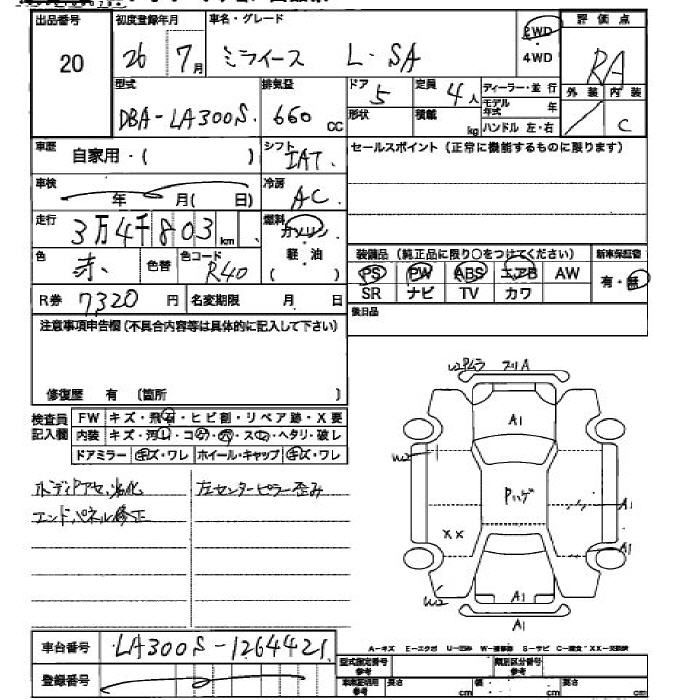 出品番号
20
初度登録年月
26 7月
車名・グレード
ミライース L・SA
2WD
4WD
評価点
RA
外装 内装
C
型式
DBA-LA300S.
排気量
660 CC
ドア
5
形状
定員
4人
積載
kg
ディーラー・並行
モデル年式 年
ハンドル 左・右
車歴
自家用・( )
シフト
IAT.
セールスポイント (正常に機能するものに限ります)
車検
年 月( 日)
冷房
AC.
走行
3万4千803km
燃料
ガソリン
・
軽・油
( )
色
赤.
色替
色コード
R40
装備品 (純正品に限り○をつけてください)
新車保証書
PS PW ABS エアB AW
SR ナビ TV カワ
有・無
R券 7320円
名変期限 月 日
後日品
注意事項申告欄 (不具合内容等は具体的に記入して下さい)
修復歴 有 〔箇所 〕
検査員
記入欄
FW キズ・飛石・ヒビ割・リペア跡・X要
内装 キズ・汚れ・コゲ・穴・スレ・ヘタリ・破レ
ドアミラー キズ・ワレ ホイール・キャップ キズ・ワレ
ボディアセ、劣化
エンドパネル修正
左センターピラー歪み
A1
W2
Pハゲ
A1
XX
A1
W2
A1
A1
車台番号 LA300S-1264421
登録番号
A-キズ E-エクボ U-凹み W-補修跡 S-サビ C-腐食 XX-交換済
型式指定番号
参考
類別区分番号
参考
車庫証明用
参考
長さ cm
幅 cm
高さ cm